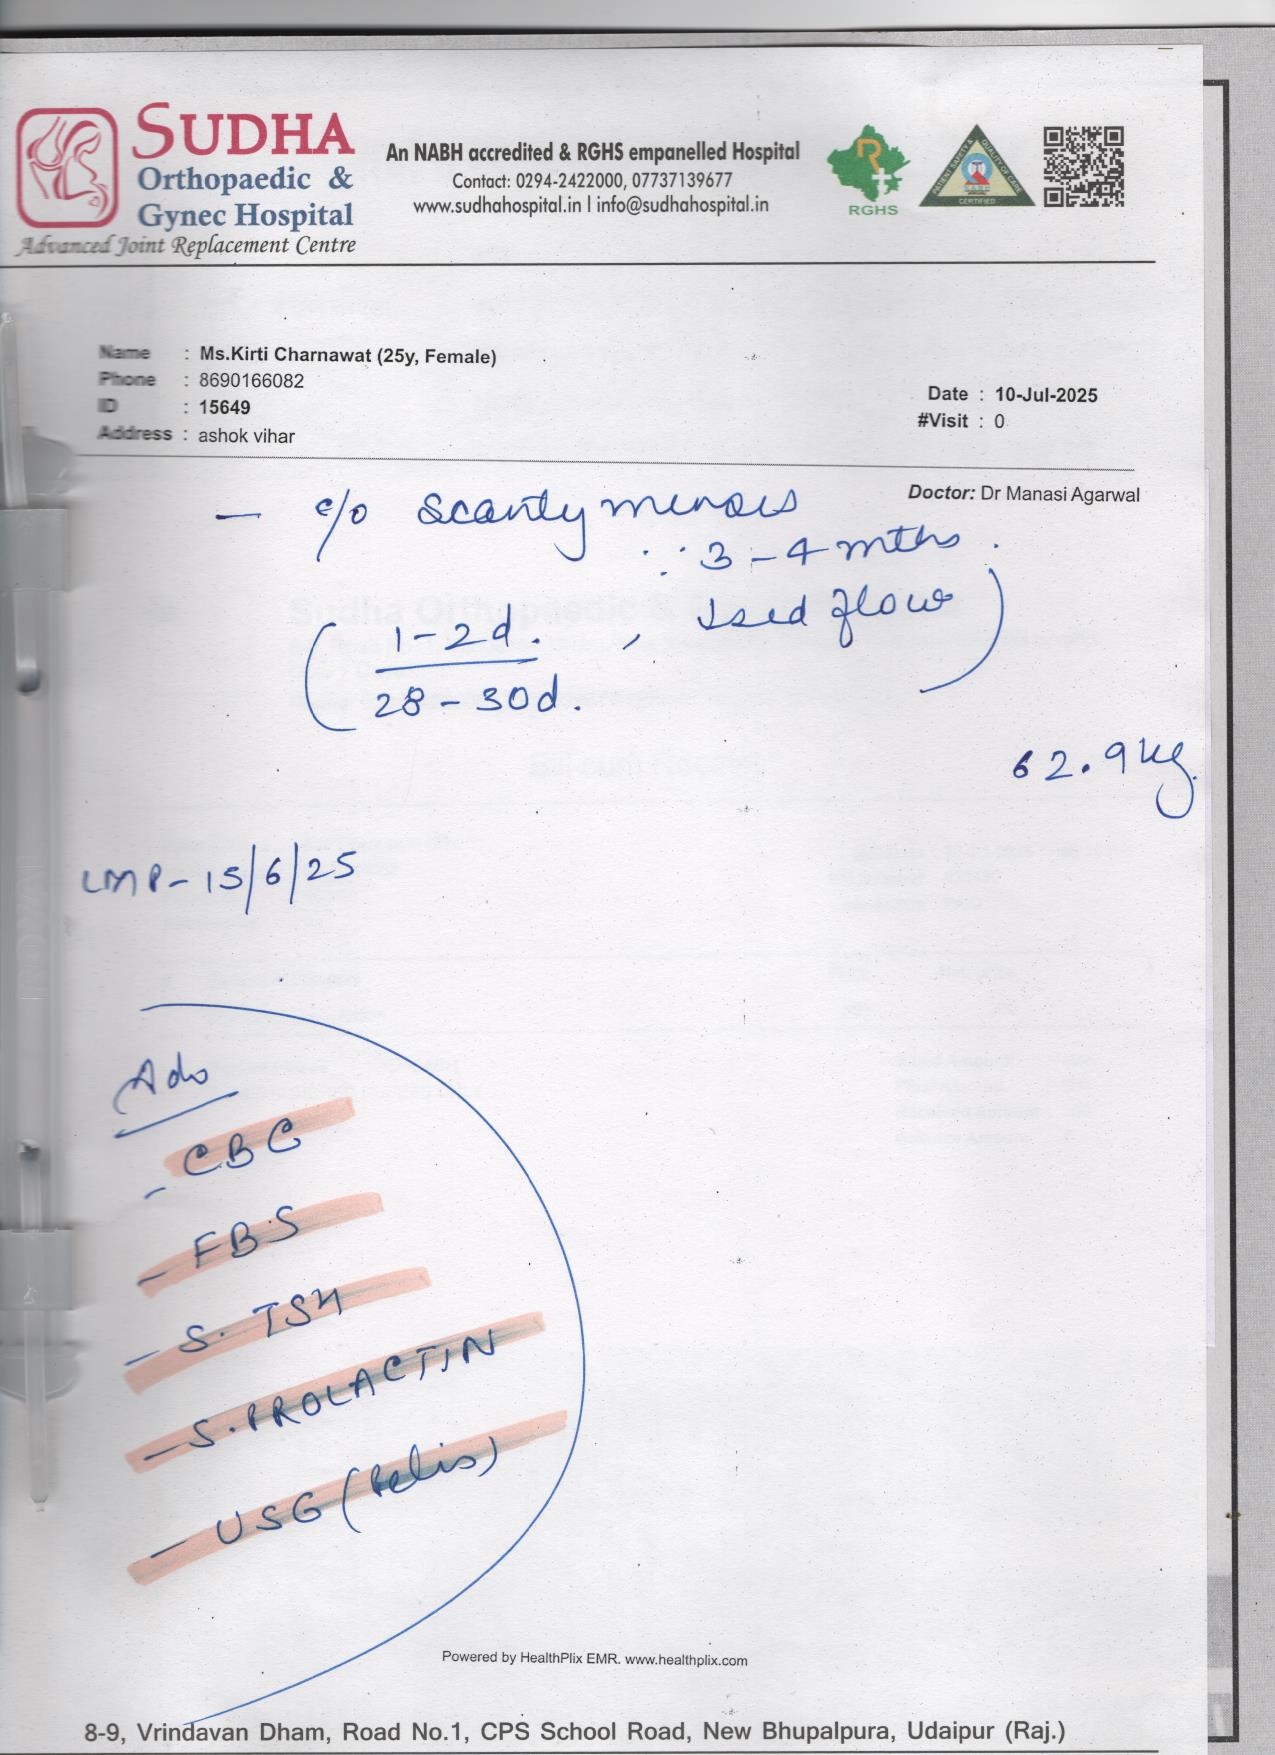 SUDHA
Orthopaedic &
Gynec Hospital
Advanced Joint Replacement Centre
An NABH accredited & RGHS empanelled Hospital
Contact: 0294-2422000, 07737139677
www.sudhahospital.in l info@sudhahospital.in
RGHS
PATIENT SAFETY & QUALITY OF CARE
CERTIFIED
Name : Ms.Kirti Charnawat (25y, Female)
Phone : 8690166082
ID : 15649
Address : ashok vihar
Date : 10-Jul-2025
#Visit : 0
Doctor: Dr Manasi Agarwal
- c/o scanty menses
∵ 3-4 mths.
(1-2d. , ↓sed flow)
28-30d.
62.9 kg.
LMP- 15/6/25
Adv
- CBC
- FBS
- S. TSH
- S. PROLACTIN
- USG (Pelvis)
Powered by HealthPlix EMR. www.healthplix.com
8-9, Vrindavan Dham, Road No.1, CPS School Road, New Bhupalpura, Udaipur (Raj.)